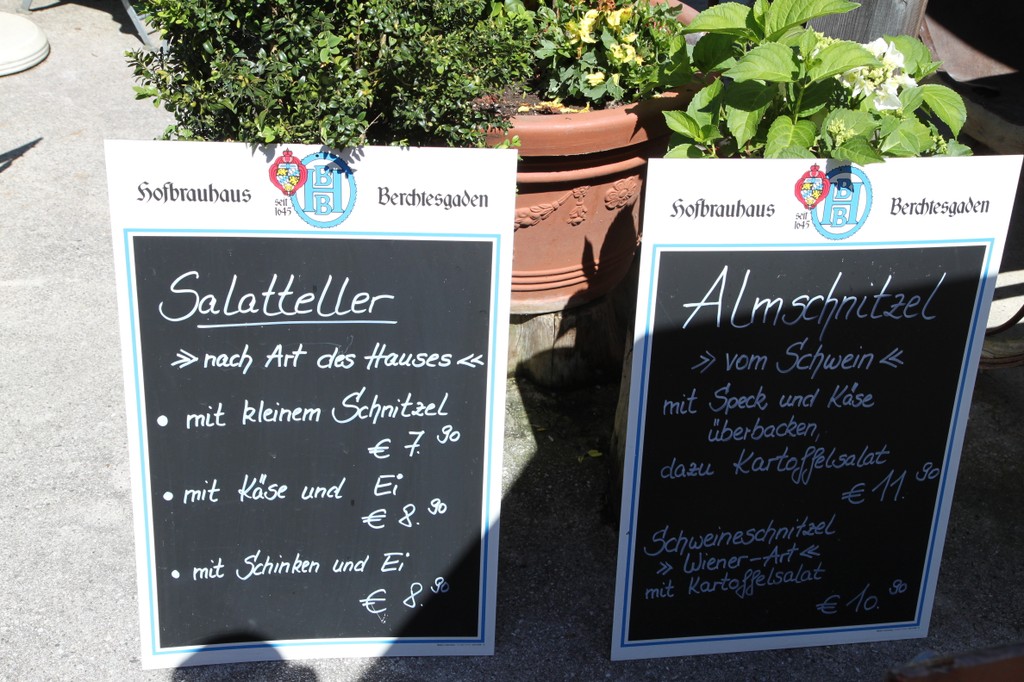 Hofbrauhaus
seit
1645
HBB
Berchtesgaden
Salatteller
» nach Art des Hauses «
• mit kleinem Schnitzel
€ 7.90
• mit Käse und Ei
€ 8.90
• mit Schinken und Ei
€ 8.90
Hofbrauhaus
seit
1645
HBB
Berchtesgaden
Almschnitzel
» vom Schwein «
mit Speck und Käse
überbacken,
dazu Kartoffelsalat
€ 11.90
Schweineschnitzel
» Wiener-Art «
mit Kartoffelsalat
€ 10.90